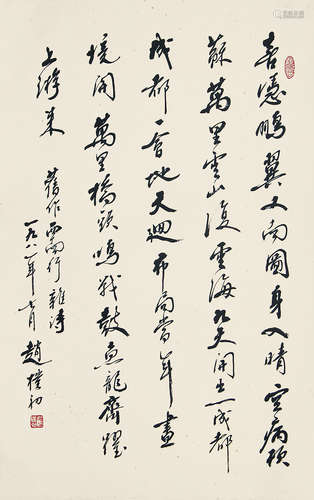 喜憑鵬翼又南圖身入晴空病欲
蘇萬里雲山復雲海九天開出成都
成都一會地天迴布局當年畫
境開萬里橋頭鳴戰鼓魚龍齊躍
上游来
舊作西南行雜詩
一九八一年七月 趙樸初